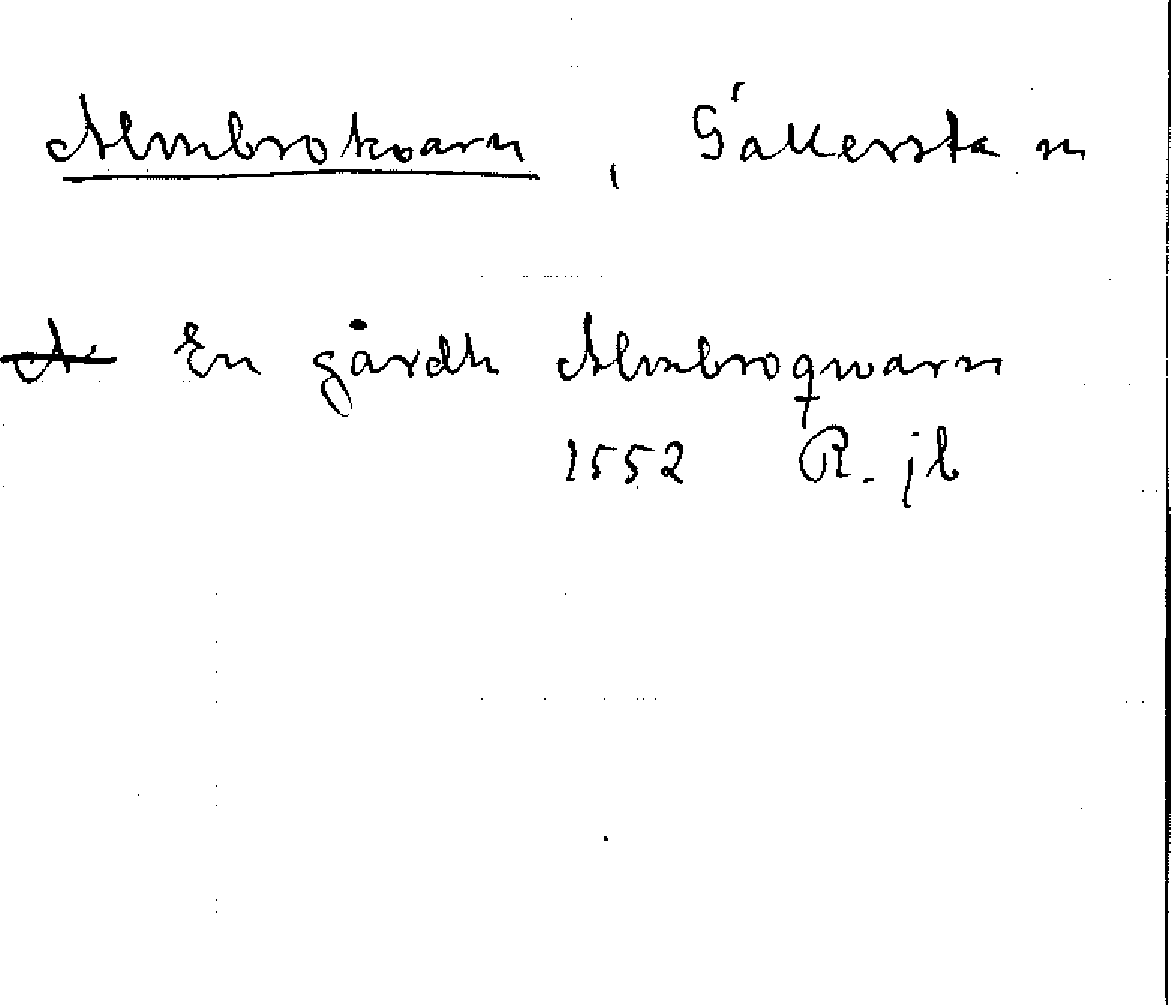 Almbrokvarn, Gällersta sn
A En gårdh Almbroqwarn
1552 R. jb